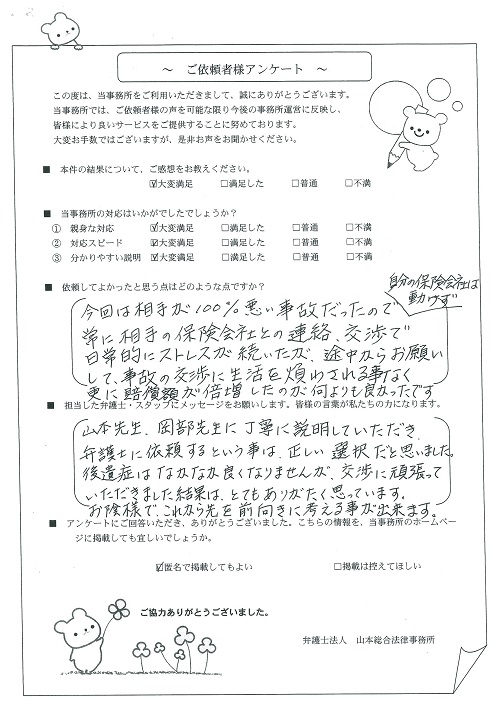 ～ ご依頼者様アンケート ～
この度は、当事務所をご利用いただきまして、誠にありがとうございます。
当事務所では、ご依頼者様の声を可能な限り今後の事務所運営に反映し、
皆様により良いサービスをご提供することに努めております。
大変お手数ではございますが、是非お声をお聞かせください。
■ 本件の結果について、ご感想をお教えください。
☑大変満足 □満足した □普通 □不満
■ 当事務所の対応はいかがでしたでしょうか？
① 親身な対応 ☑大変満足 □満足した □普通 □不満
② 対応スピード ☑大変満足 □満足した □普通 □不満
③ 分かりやすい説明 ☑大変満足 □満足した □普通 □不満
■ 依頼してよかったと思う点はどのような点ですか？
自分の保険会社は
動けず
今回は相手が100％悪い事故だったので
常に相手の保険会社との連絡、交渉で
日常的にストレスが続いたが、途中からお願い
して、事故の交渉に生活を煩わされる事なく
更に賠償額が倍増したのが何よりも良かったです
■ 担当した弁護士・スタッフにメッセージをお願いします。皆様の言葉が私たちの力になります。
山本先生、岡部先生に丁寧に説明していただき、
弁護士に依頼するという事は、正しい選択だと思いました。
後遺症はなかなか良くなりませんが、交渉に頑張って
いただきました結果は、とてもありがたく思っています。
お陰様で、これから先を前向きに考える事が出来ます。
■ アンケートにご回答いただき、ありがとうございました。こちらの情報を、当事務所のホームペー
ジに掲載しても宜しいでしょうか。
☑匿名で掲載してもよい □掲載は控えてほしい
ご協力ありがとうございました。
弁護士法人 山本総合法律事務所